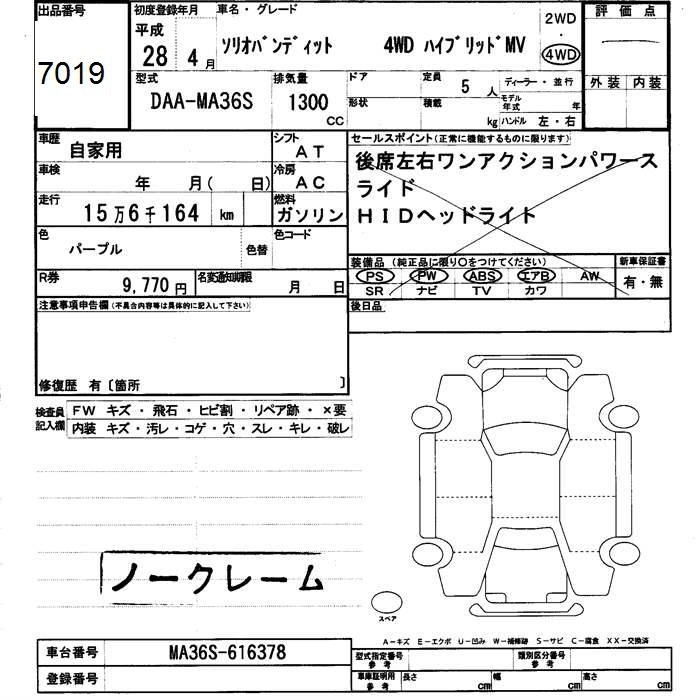 出品番号
7019
初度登録年月
平成
28 4月
車名・グレード
ソリオバンディット 4WD ハイブリッドMV
2WD
・
4WD
評価点
型式
DAA-MA36S
排気量
1300
CC
ドア
形状
定員
5 人
積載
kg
ディーラー・並行
モデル
年式
年
ハンドル 左・右
外装 内装
車歴
自家用
シフト
AT
セールスポイント(正常に機能するものに限ります)
後席左右ワンアクションパワース
ライド
HIDヘッドライト
車検
年 月( 日)
冷房
AC
走行
15万6千164 km
燃料
ガソリン
色
パープル
色替
色コード
装備品(純正品に限り○をつけてください)
PS PW ABS エアB AW
SR ナビ TV カワ
新車保証書
有・無
R券
9,770円
名変通知期限
月 日
後日品
注意事項申告欄(不具合内容等は具体的に記入して下さい)
修復歴 有〔箇所 〕
検査員
記入欄
FW キズ・飛石・ヒビ割・リペア跡・×要
内装 キズ・汚レ・コゲ・穴・スレ・キレ・破レ
ノークレーム
スペア
A-キズ E-エクボ U-凹み W-補修跡 S-サビ C-腐食 XX-交換済
車台番号
MA36S-616378
登録番号
型式指定番号
参考
類別区分番号
参考
車庫証明用
参考
長さ cm
幅 cm
高さ cm